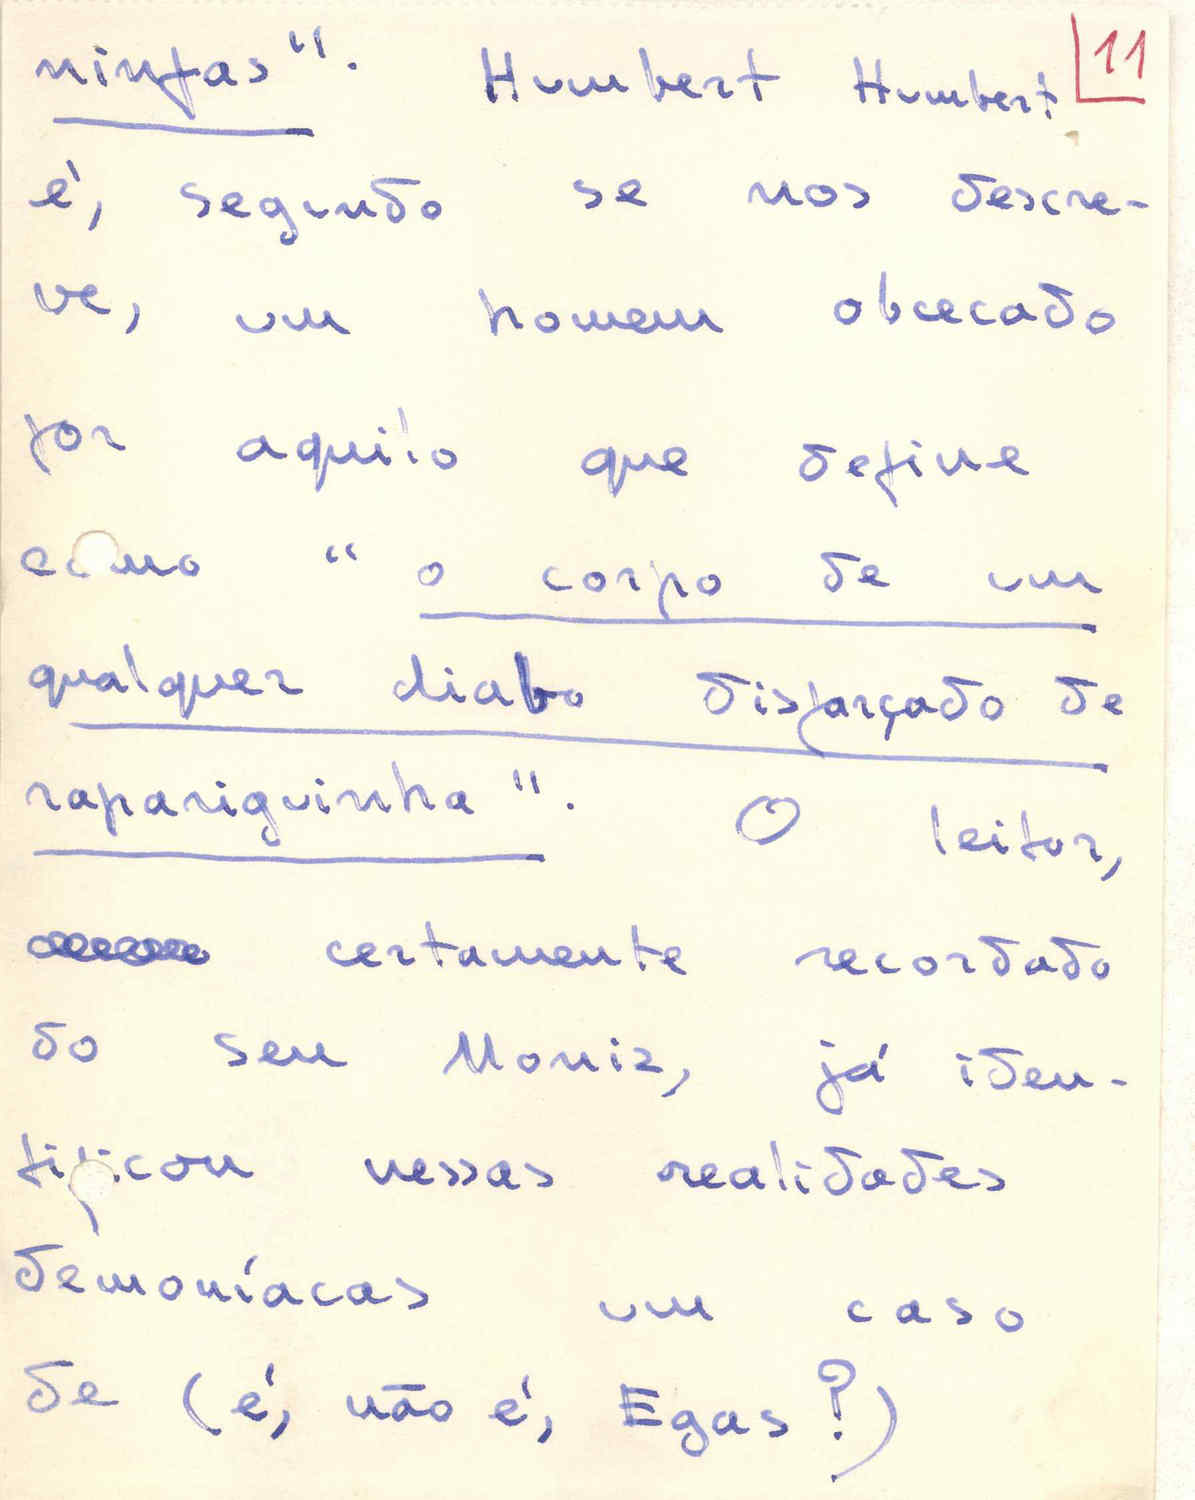 ninfas". Humbert Humbert 11
é, segundo se nos descre-
ve, um homem obcecado
por aquilo que define
como "o corpo de um
qualquer diabo disfarçado de
rapariguinha". O leitor,
certamente recordado
do seu Moniz, já iden-
tificou nessas realidades
demoníacas um caso
de (é, não é, Egas?)